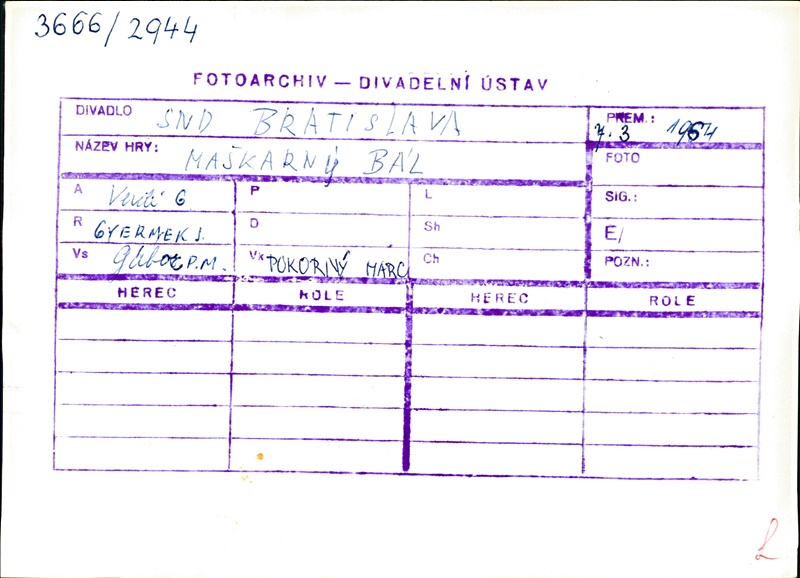 3666/2944
FOTOARCHIV — DIVADELNÍ ÚSTAV
DIVADLO SND BRATISLAVA
PREM.: 7.3 1964
NÁZEV HRY: MAŠKARNÝ BÁL
FOTO
A Verdi G P L SIG.:
R GYERMEK J. D Sh E/
Vs P.M. Vk POKORNÝ MARC Ch POZN.:
HEREC ROLE HEREC ROLE
L